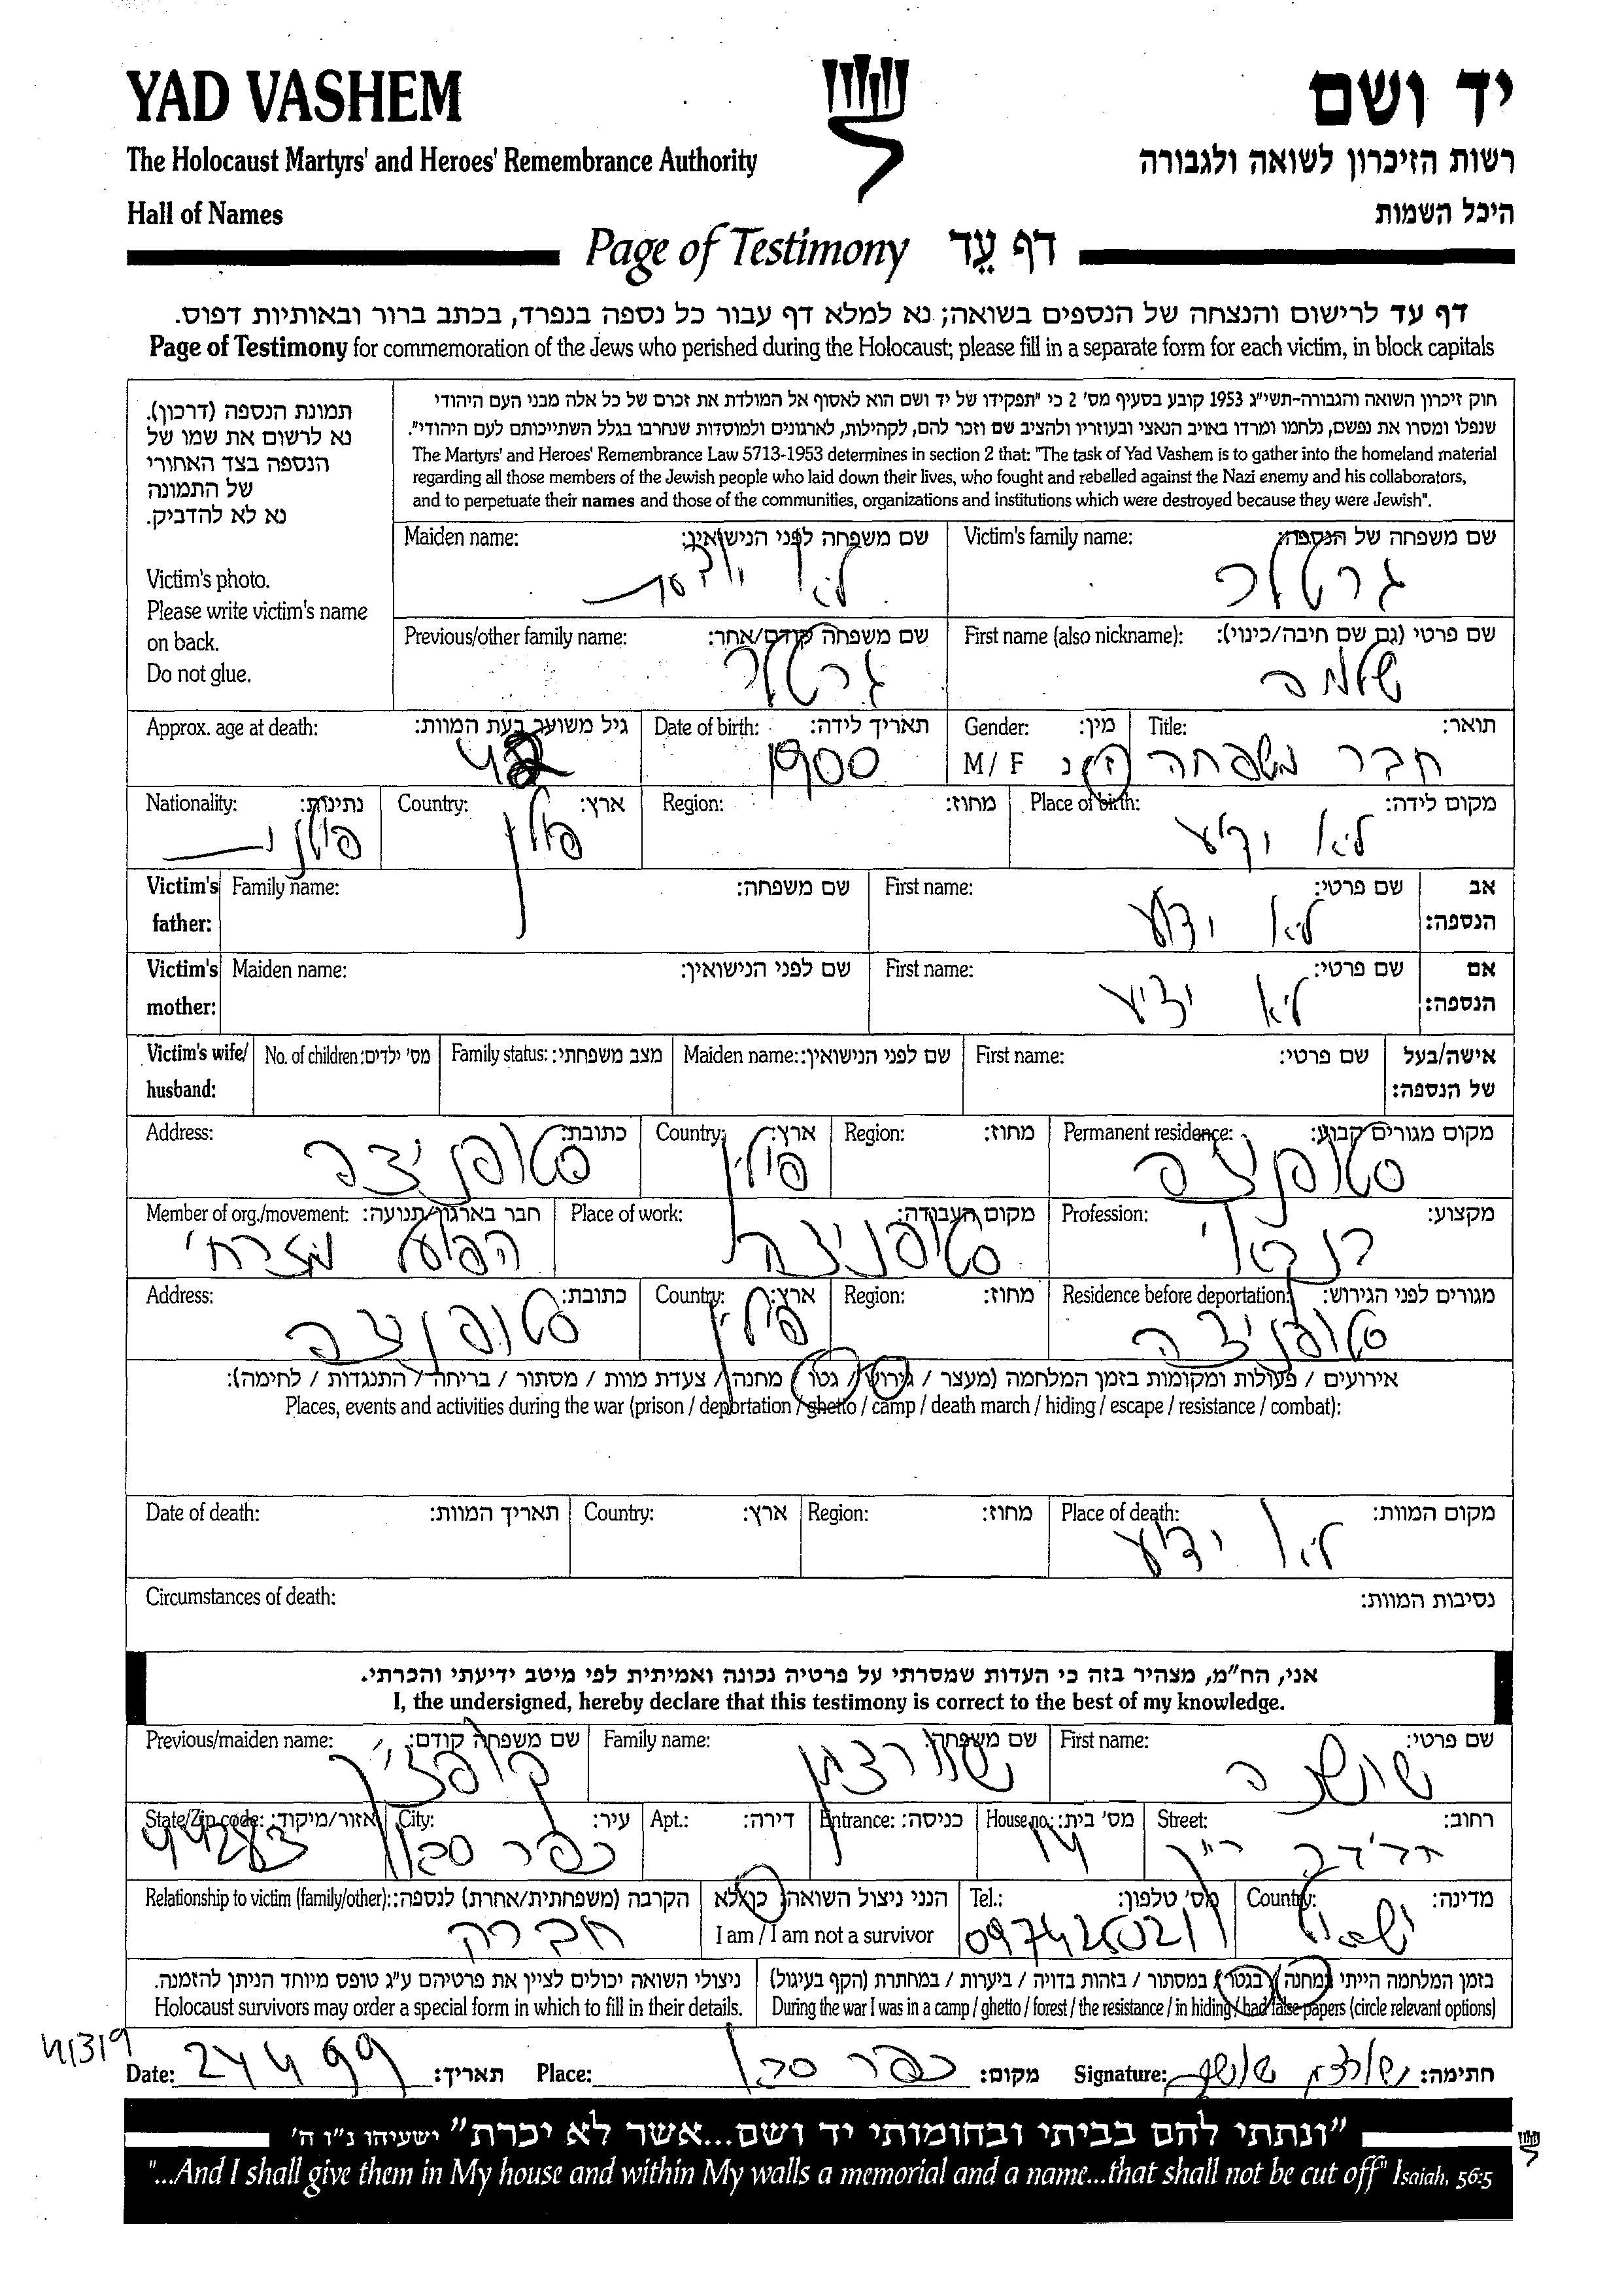 YAD VASHEM
יד ושם
The Holocaust Martyrs' and Heroes' Remembrance Authority
רשות הזיכרון לשואה ולגבורה
Hall of Names
היכל השמות
Page of Testimony דף עֵד
דף עד לרישום והנצחה של הנספים בשואה; נא למלא דף עבור כל נספה בנפרד, בכתב ברור ובאותיות דפוס.
Page of Testimony for commemoration of the Jews who perished during the Holocaust; please fill in a separate form for each victim, in block capitals
תמונת הנספה (דרכון).
נא לרשום את שמו של
הנספה בצד האחורי
של התמונה
נא לא להדביק.
Victim's photo.
Please write victim's name
on back.
Do not glue.
חוק זיכרון השואה והגבורה-תשי"ג 1953 קובע בסעיף מס' 2 כי "תפקידו של יד ושם הוא לאסוף אל המולדת את זכרם של כל אלה מבני העם היהודי
שנפלו ומסרו את נפשם, נלחמו ומרדו באויב הנאצי ובעוזריו ולהציב שם וזכר להם, לקהילות, לארגונים ולמוסדות שנחרבו בגלל השתייכותם לעם היהודי".
The Martyrs' and Heroes' Remembrance Law 5713-1953 determines in section 2 that: "The task of Yad Vashem is to gather into the homeland material
regarding all those members of the Jewish people who laid down their lives, who fought and rebelled against the Nazi enemy and his collaborators,
and to perpetuate their names and those of the communities, organizations and institutions which were destroyed because they were Jewish".
שם משפחה של הנספה: Victim's family name:
גרטלר
שם משפחה לפני הנישואין: Maiden name:
לא
שם פרטי (גם שם חיבה/כינוי): First name (also nickname):
שלמה
שם משפחה קודם/אחר: Previous/other family name:
גרטלר
תואר: Title:
חבר משפחה
מין: Gender:
ז/נ M / F
תאריך לידה: Date of birth:
1900
גיל משוער בעת המוות: Approx. age at death:
42
מקום לידה: Place of birth:
לא ידוע
מחוז: Region:
ארץ: Country:
פולין
נתינות: Nationality:
פולני
אב הנספה: Victim's father:
שם פרטי: First name:
לא ידוע
שם משפחה: Family name:
אם הנספה: Victim's mother:
שם פרטי: First name:
לא ידוע
שם לפני הנישואין: Maiden name:
אישה/בעל של הנספה: Victim's wife/husband:
שם פרטי: First name:
שם לפני הנישואין: Maiden name:
מצב משפחתי: Family status:
מס' ילדים: No. of children:
מקום מגורים קבוע: Permanent residence:
סטופניצה
מחוז: Region:
ארץ: Country:
פולין
כתובת: Address:
סטופניצה
מקצוע: Profession:
מקום העבודה: Place of work:
סטופניצה
חבר בארגון/תנועה: Member of org./movement:
הפועל מזרחי
מגורים לפני הגירוש: Residence before deportation:
סטופניצה
מחוז: Region:
ארץ: Country:
פולין
כתובת: Address:
סטופניצה
אירועים / פעולות ומקומות בזמן המלחמה (מעצר / גירוש / גטו / מחנה / צעדת מוות / מסתור / בריחה / התנגדות / לחימה):
Places, events and activities during the war (prison / deportation / ghetto / camp / death march / hiding / escape / resistance / combat):
מקום המוות: Place of death:
לא ידוע
מחוז: Region:
ארץ: Country:
תאריך המוות: Date of death:
נסיבות המוות: Circumstances of death:
אני, הח"מ, מצהיר בזה כי העדות שמסרתי על פרטיה נכונה ואמיתית לפי מיטב ידיעתי והכרתי.
I, the undersigned, hereby declare that this testimony is correct to the best of my knowledge.
שם פרטי: First name:
שושנה
שם משפחה: Family name:
שוורצמן
שם משפחה קודם: Previous/maiden name:
רחוב: Street:
מס' בית: House no.:
14
כניסה: Entrance:
דירה: Apt.:
עיר: City:
כפר סבא
אזור/מיקוד: State/Zip code:
44283
מדינה: Country:
ישראל
מס' טלפון: Tel.:
097426021
הנני ניצול השואה: כן/לא
I am / I am not a survivor
הקרבה (משפחתית/אחרת) לנספה: Relationship to victim (family/other):
חברה
בזמן המלחמה הייתי (מחנה / בגטו / במסתור / בזהות בדויה / ביערות / במחתרת (הקף בעיגול)
During the war I was in a camp / ghetto / forest / the resistance / in hiding / had false papers (circle relevant options)
ניצולי השואה יכולים לציין את פרטיהם ע"ג טופס מיוחד הניתן להזמנה.
Holocaust survivors may order a special form in which to fill in their details.
חתימה: Signature:
מקום: כפר סבא Place:
תאריך: 24 4 99 Date:
"ונתתי להם בביתי ובחומותי יד ושם...אשר לא יכרת" ישעיהו נ"ו ה'
"...And I shall give them in My house and within My walls a memorial and a name...that shall not be cut off" Isaiah, 56:5